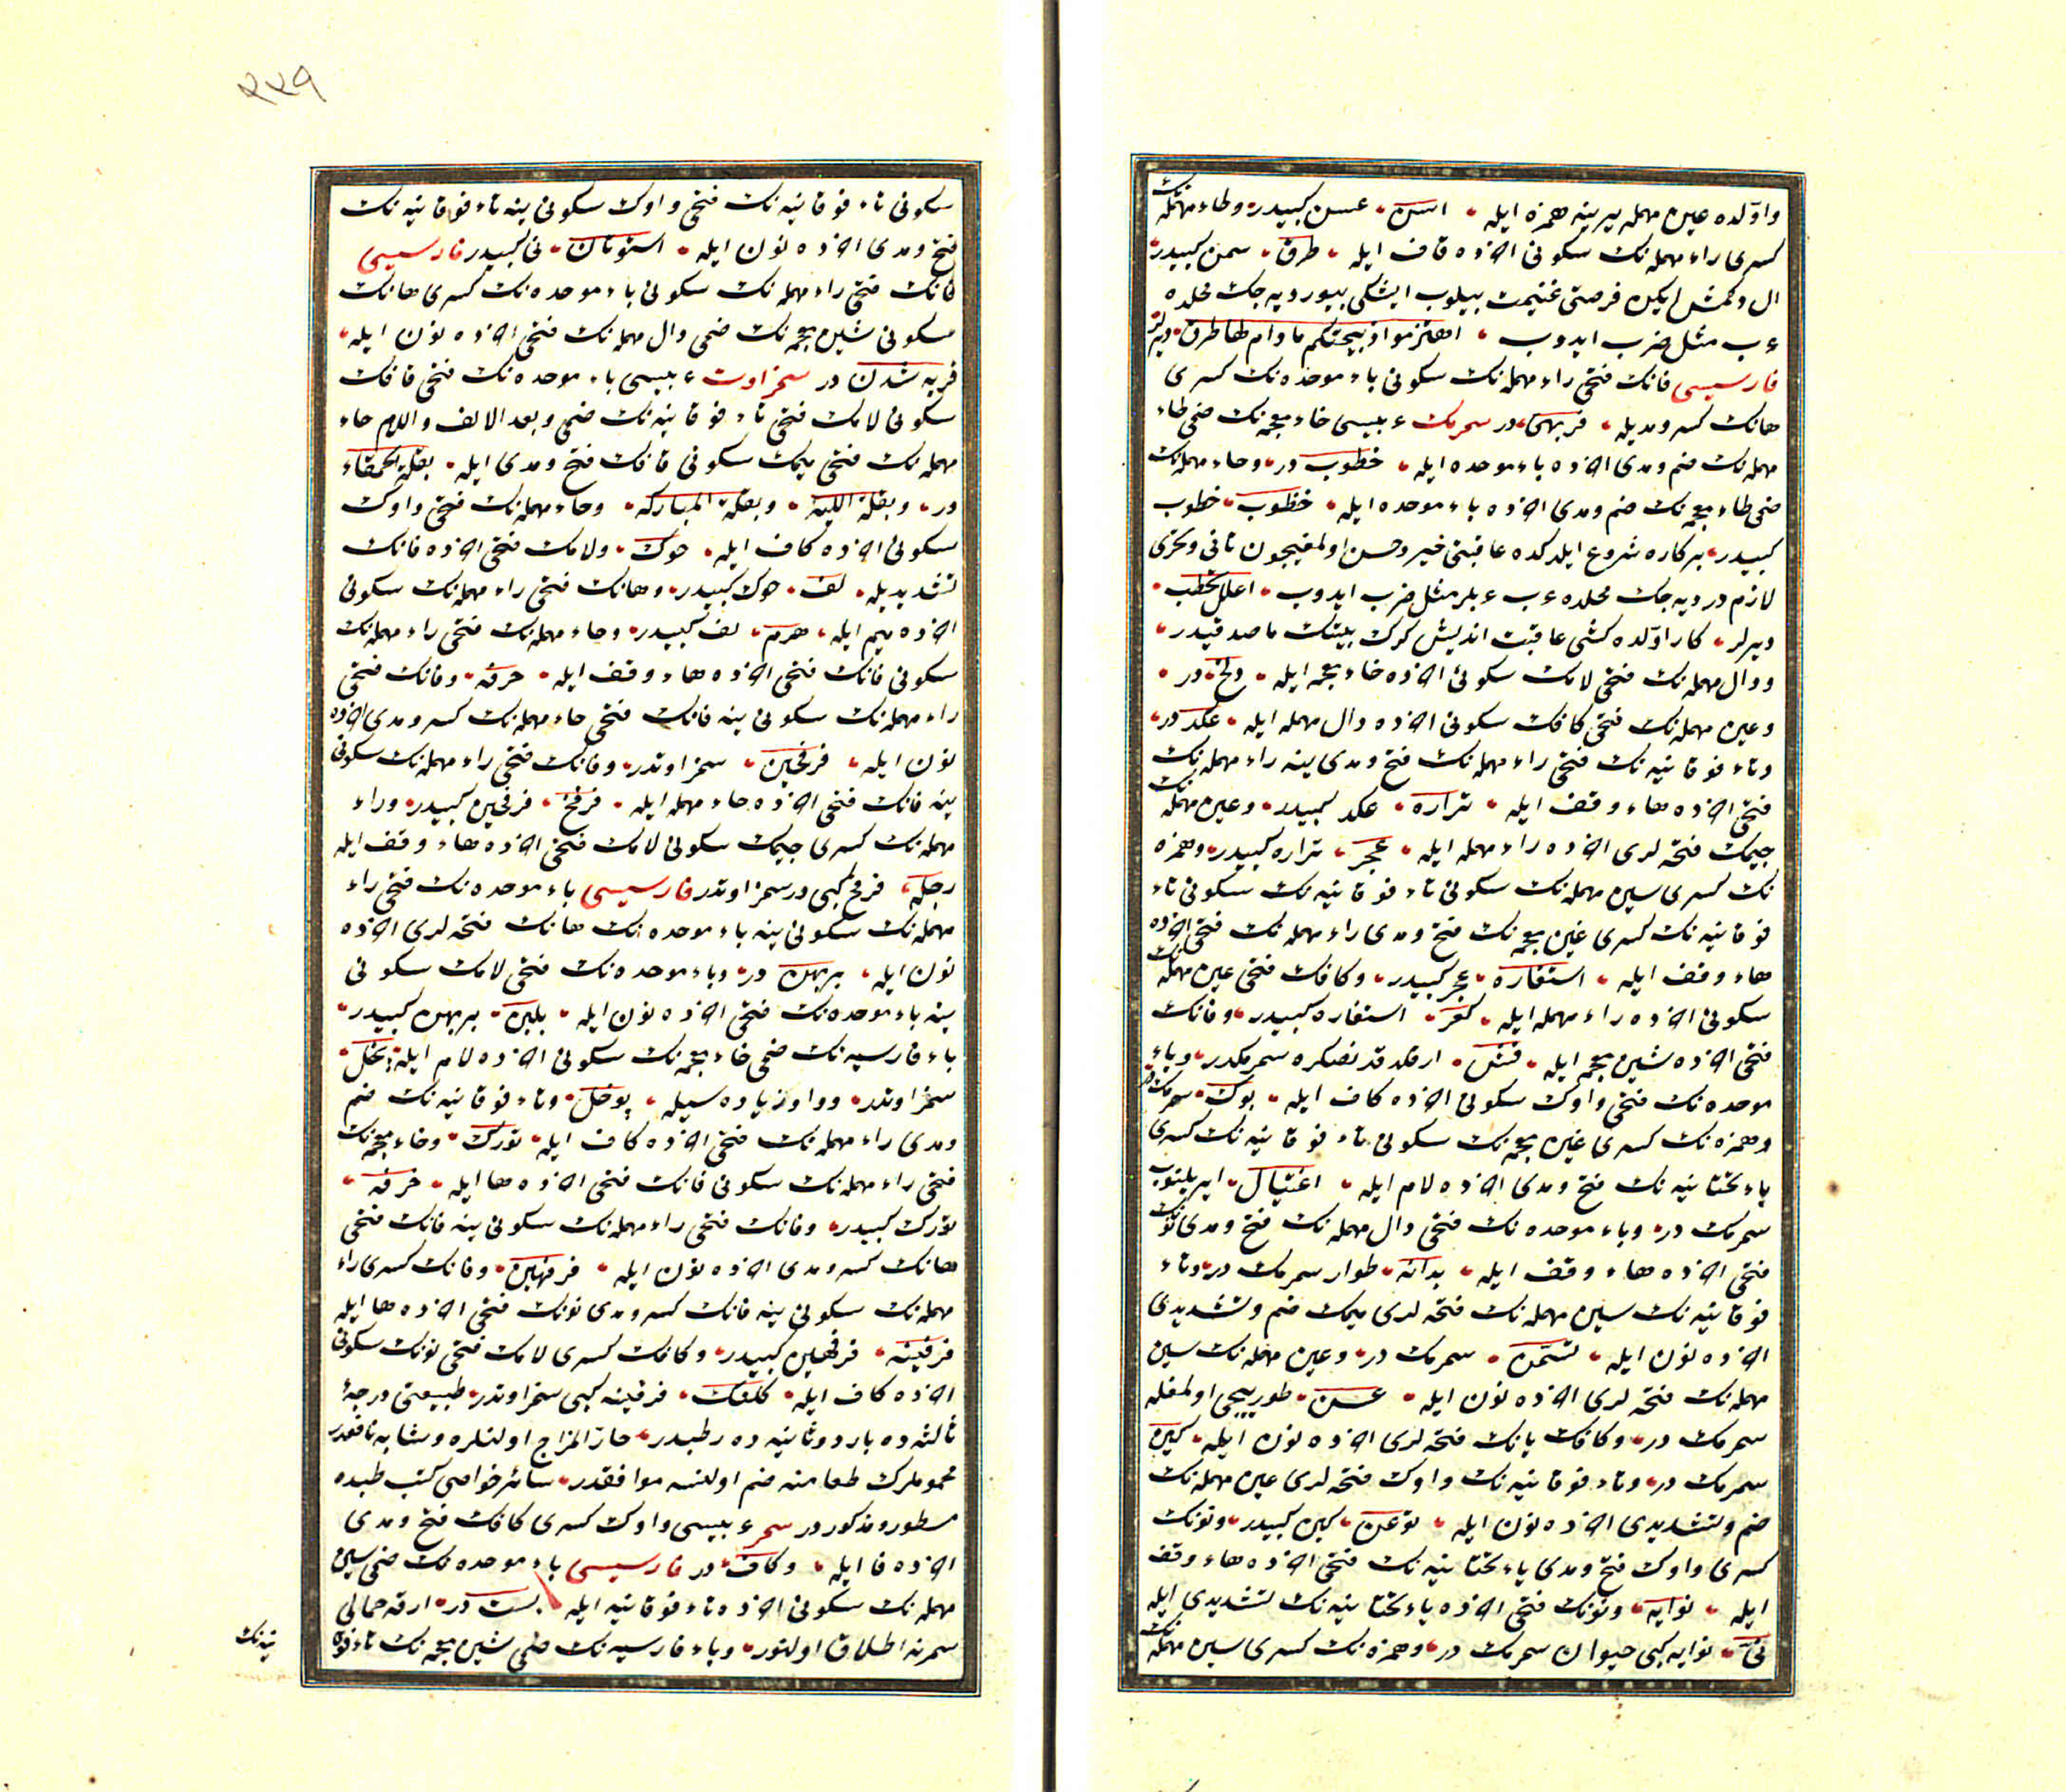 واولده عين مهمله يرينه همزه ايله ، اسن ، عسن كبيدر ، وطاء مهمله نك
كسرى راء مهمله نك سكونى اخرده قاف ايله ، طرق ، سمن كبيدر ،
ال وكمش ايكن فرصتى غنيمت بيلوب ايشكى بيورويه جك محلده
ء ب مثل ضرب ايدوب ، اهتزموا ذبيحتكم مادام بها طرق ، ديرلر
فارسيسى فانك فتحى راء مهمله نك سكونى باء موحده نك كسرى
هانك كسر ومديله ، فربهى ، در سمرمك ء بيسى خاء معجمه نك ضمى طاء
مهمله نك ضم ومدى اخرده باء موحده ايله ، خطوب در ، وحاء مهمله نك
ضمى ظاء معجمه نك ضم ومدى اخرده باء موحده ايله ، حظوب ، خطوب
كبيدر ، بر كاره شروع ايلدكده عاقبتى خير وحسن اولمغيچون تانى وتحرى
لازم در ديه جك محلده ء ب ء بلر مثل ضرب ايدوب ، اعلل تحظب ،
ديرلر ، كار اولده كشى عاقبت انديش كرك بيتنك ماصدقيدر ،
ودال مهمله نك فتحى لامك سكونى اخرده خاء معجمه ايله ، دلخ ، در ،
وعين مهمله نك فتحى كافك سكونى اخرده دال مهمله ايله ، عكد در ،
وتاء فوقانيه نك فتحى راء مهمله نك فتح ومدى ينه راء مهمله نك
فتحى اخرده هاء وقف ايله ، تراره ، عكد كبيدر ، وعين مهمله نك
جيمك فتحه لرى اخرده راء مهمله ايله ، عجر ، تراره كبيدر ، وهمزه
نك كسرى سين مهمله نك سكونى تاء فوقانيه نك سكونى تاء
فوقانيه نك كسرى غين معجمه نك فتح ومدى راء مهمله نك فتحى اخرده
هاء وقف ايله ، استغاره ، عجر كبيدر ، وكافك فتحى عين مهمله نك
سكونى اخرده راء مهمله ايله ، كعر ، استغاره كبيدر ، وفانك
فتحى اخرده شين معجمه ايله ، فش ، ارقلد قد نصكره سمرمكدر ، وباء
موحده نك فتحى واوك سكونى اخرده كاف ايله ، بوك ، سمرمك در
وهمزه نك كسرى غين معجمه نك سكونى تاء فوقانيه نك كسرى
ياء تحتانيه نك فتح ومدى اخرده لام ايله ، اغتيال ، ايريلنوب
سمرمك در ، وباء موحده نك فتحى دال مهمله نك فتح ومدى نونك
فتحى اخرده هاء وقف ايله ، بدانه ، طوار سمرمك در ، وتاء
فوقانيه نك سين مهمله نك فتحه لرى ميمك ضم وتشديدى
اخرده نون ايله ، تسمن ، سمرمك در ، وعين مهمله نك سين
مهمله نك فتحه لرى اخرده نون ايله ، عسن ، طور ييجى اولمغله
سمرمك در ، وكافك يانك فتحه لرى اخرده نون ايله ، كين
سمرمك در ، وتاء فوقانيه نك واوك فتحه لرى عين مهمله نك
ضم وتشديدى اخرده نون ايله ، توعن ، كين كبيدر ، ونونك
كسرى واوك فتح ومدى ياء تحتانيه نك فتحى اخرده هاء وقف
ايله ، نوايه ، ونونك فتحى اخرده ياء تحتانيه نك تشديدى ايله
نى ، نوايه كبى حيوان سمرمك در ، وهمزه نك كسرى سين مهمله نك
٢٢٩
سكونى تاء فوقانيه نك فتحى واوك سكونى ينه تاء فوقانيه نك
فتح ومدى اخرده نون ايله ، استوتان ، نى كبيدر فارسيسى
فانك فتحى راء مهمله نك سكونى باء موحده نك كسرى هانك
سكونى شين معجمه نك ضمى دال مهمله نك فتحى اخرده نون ايله ،
فربه شدن در سمزاوت ء بيسى باء موحده نك فتحى قافك
سكونى لامك فتحى تاء فوقانيه نك ضمى وبعد الالف واللام حاء
مهمله نك فتحى ميمك سكونى قافك فتح ومدى ايله ، بقلة الحمقاء
در ، وبقلة اللينه ، وبقلة المباركه ، وحاء مهمله نك فتحى واوك
سكونى اخرده كاف ايله ، حوك ، ولامك فتحى اخرده فانك
تشديديله ، لف ، حوك كبيدر ، وهانك فتحى راء مهمله نك سكونى
اخرده ميم ايله ، هرم ، لف كبيدر ، وحاء مهمله نك فتحى راء مهمله نك
سكونى فانك فتحى اخرده هاء وقف ايله ، حرفه ، وفانك فتحى
راء مهمله نك سكونى ينه فانك فتحى حاء مهمله نك كسر ومدى اخرده
نون ايله ، فرفحين ، سمزاوتدر ، وفانك فتحى راء مهمله نك سكونى
ينه فانك فتحى اخرده حاء مهمله ايله ، فرفح ، فرفحين كبيدر ، وراء
مهمله نك كسرى جيمك سكونى لامك فتحى اخرده هاء وقف ايله
رجله ، فرفح كبى در سمزاوتدر فارسيسى باء موحده نك فتحى راء
مهمله نك سكونى ينه باء موحده نك هانك فتحه لرى اخرده
نون ايله ، بربهن در ، وباء موحده نك فتحى لامك سكونى
ينه باء موحده نك فتحى اخرده نون ايله ، بلبن ، بربهن كبيدر ،
باء فارسيه نك ضمى خاء معجمه نك سكونى اخرده لام ايله ، پخل ،
سمزاوتدر ، وواو زياده سيله ، پوخل ، وتاء فوقانيه نك ضم
ومدى راء مهمله نك فتحى اخرده كاف ايله ، تورك ، وخاء معجمه نك
فتحى راء مهمله نك سكونى فانك فتحى اخرده ها ايله ، خرفه ،
تورك كبيدر ، وفانك فتحى راء مهمله نك سكونى ينه فانك فتحى
هانك كسر ومدى اخرده نون ايله ، فرفهين ، وفانك كسرى راء
مهمله نك سكونى ينه فانك كسر ومدى نونك فتحى اخرده ها ايله
فرفينه ، فرفهين كبيدر ، وكافك كسرى لامك فتحى نونك سكونى
اخرده كاف ايله ، كلنك ، فرفينه كبى سمزاوتدر ، طبيعتى درجۀ
ثالثه ده بارد وثانيه ده رطبدر ، حار المزاج اولنلره ومثابه نافعدر
محمومرك طعامنه ضم اولنسه موافقدر ، سائر خواصى كتب طبده
مسطور ومذكور در سمر ء بيسى واوك كسرى كافك فتح ومدى
اخرده فا ايله ، وكاف ، در فارسيسى باء موحده نك ضمى سين
مهمله نك سكونى اخرده تاء فوقانيه ايله ، بست در ، ارقه حمالى
سمرنه اطلاق اولنور ، وباء فارسيه نك ضمى شين معجمه نك تاء فوقا
نيه نك